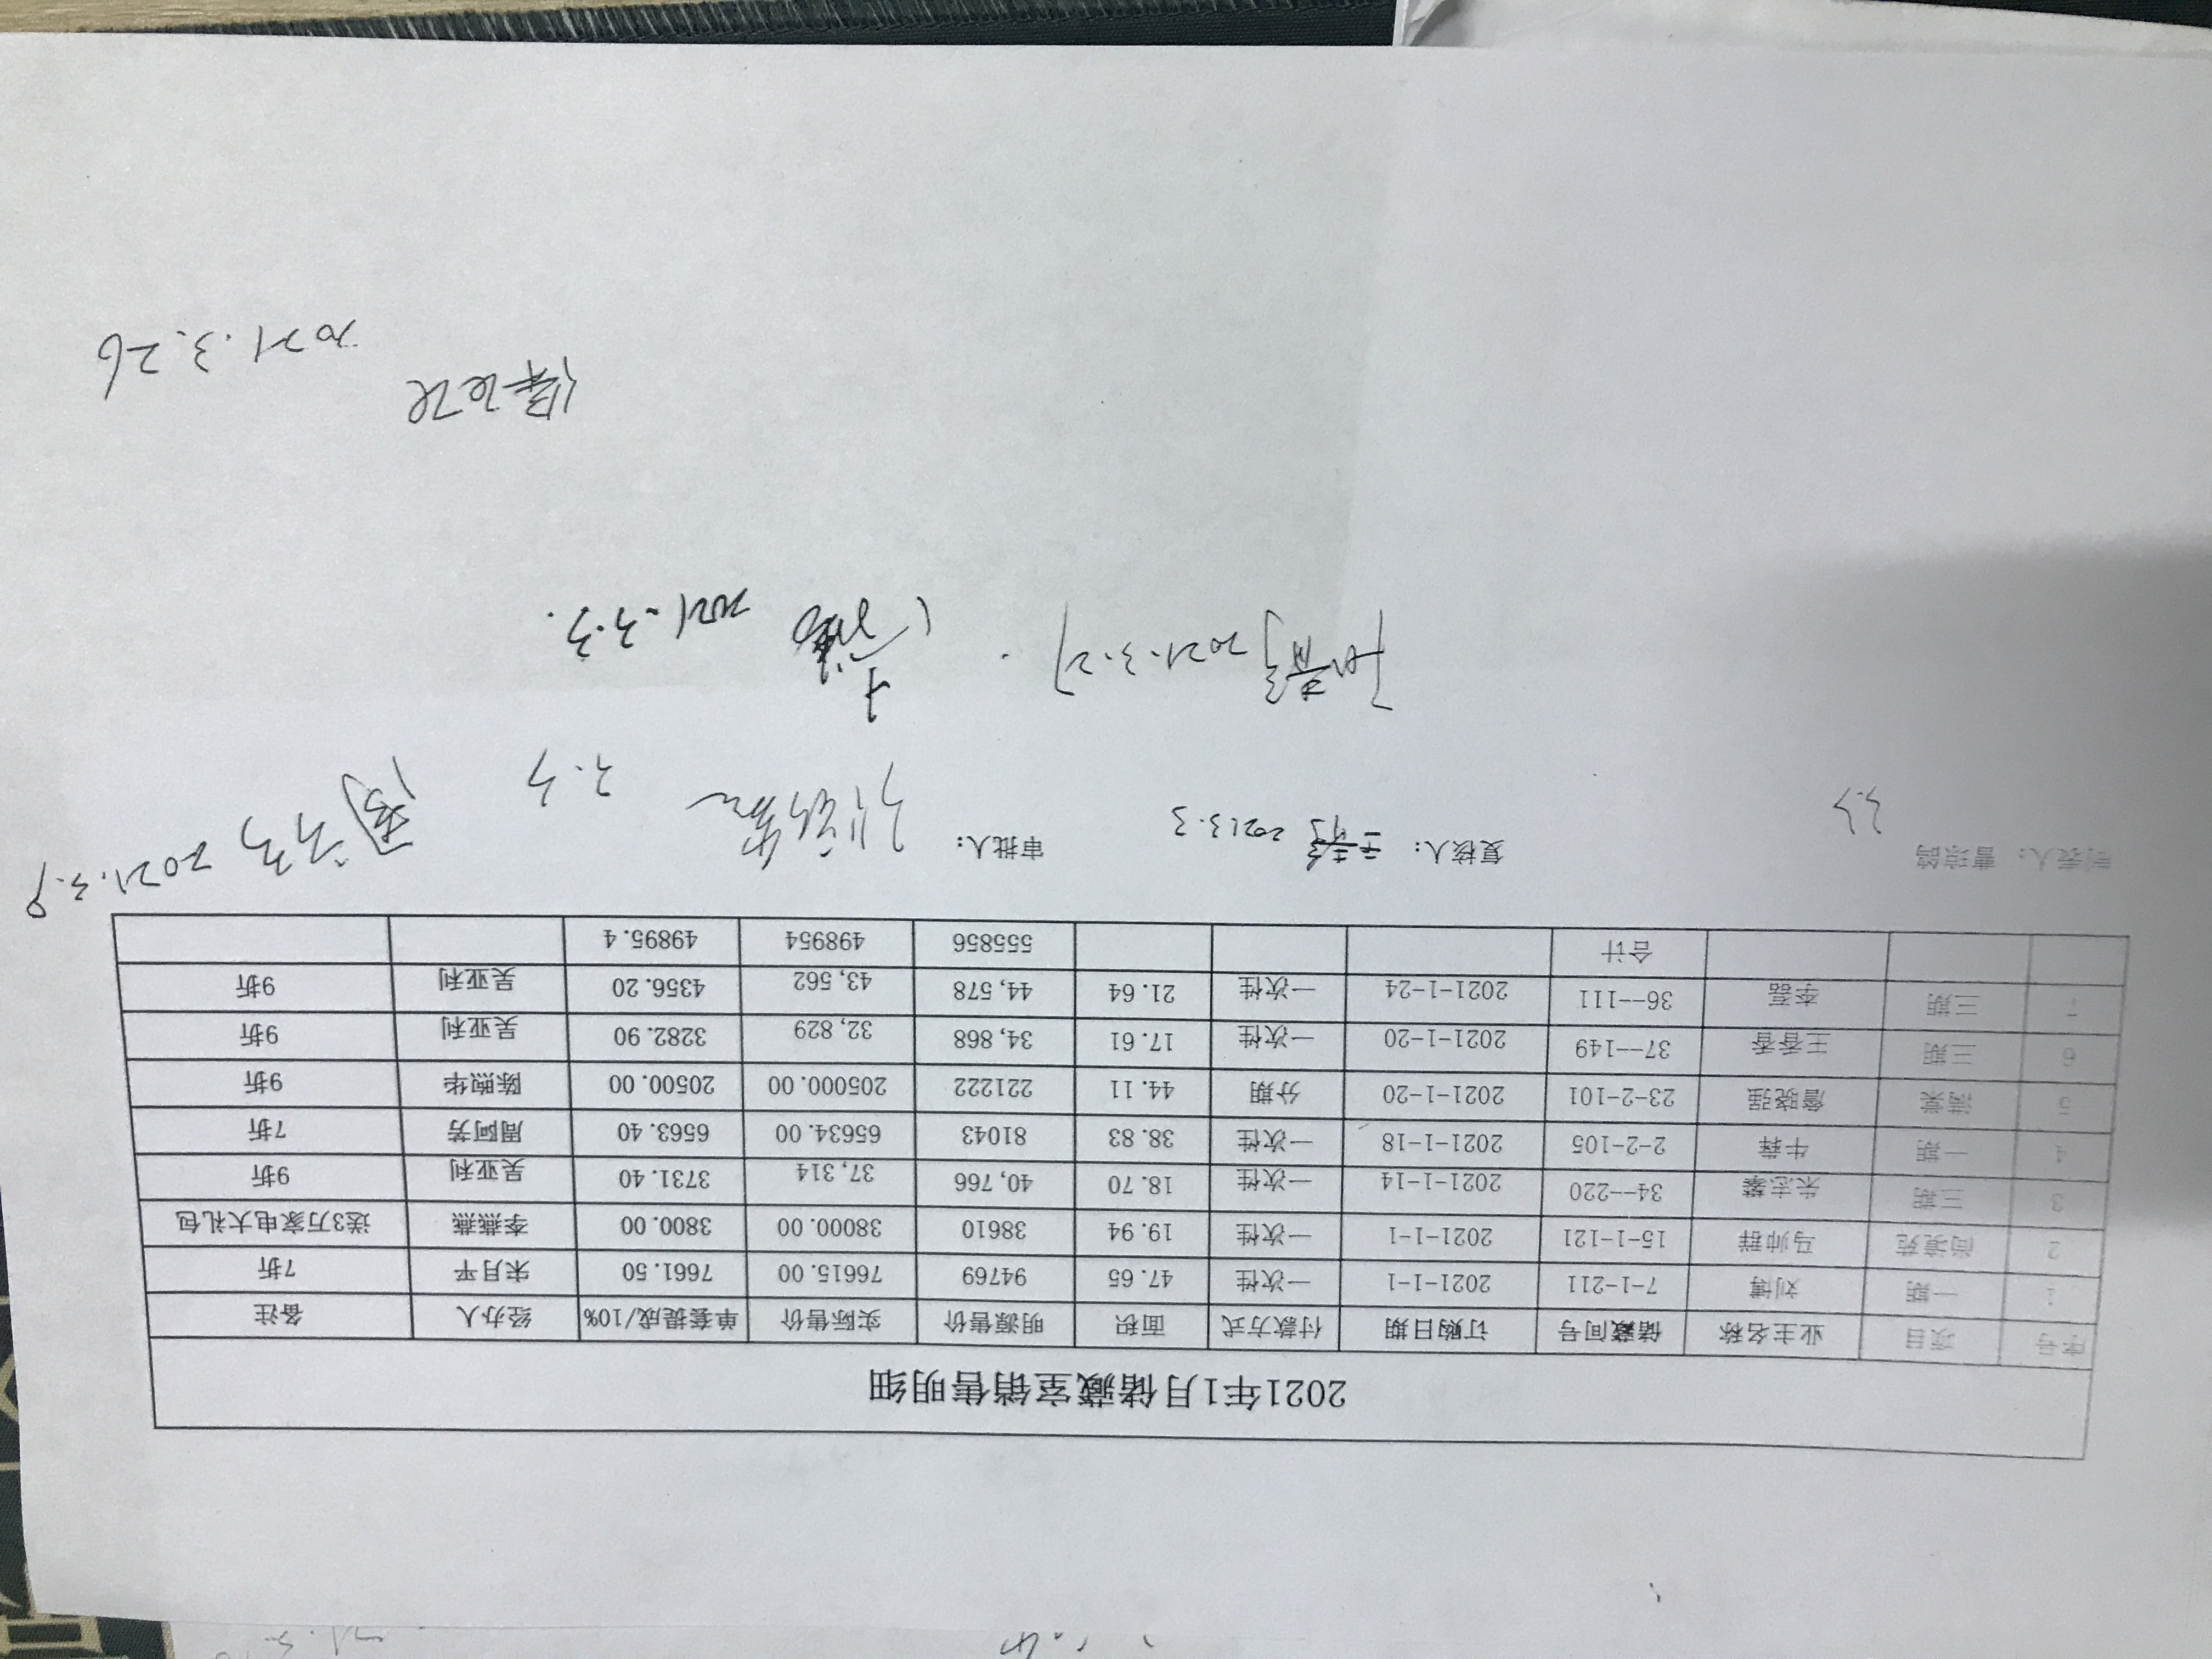 2021年1月储藏室销售明细
序号 项目 业主名称 储藏间号 订购日期 付款方式 面积 明源售价 实际售价 单套提成/10% 经办人 备注
1 一期 刘博 7-1-211 2021-1-1 一次性 47.65 94769 76615.00 7661.50 宋月平 7折
2 尚濠苑 马帅群 15-1-121 2021-1-1 一次性 19.94 38610 38000.00 3800.00 李燕燕 送3万家电大礼包
3 三期 朱志攀 34--220 2021-1-14 一次性 18.70 40,766 37,314 3731.40 吴亚利 9折
4 一期 牛犇 2-2-105 2021-1-18 一次性 38.83 81043 65634.00 6563.40 周阿芳 7折
5 满棠 詹晓强 23-2-101 2021-1-20 分期 44.11 221222 205000.00 20500.00 陈煦华 9折
6 三期 王香香 37--149 2021-1-20 一次性 17.61 34,868 32,829 3282.90 吴亚利 9折
7 三期 李磊 36--111 2021-1-24 一次性 21.64 44,578 43,562 4356.20 吴亚利 9折
合计 555856 498954 49895.4
制表人：曹琼鸽 3.3 复核人： 2021.3.3 审批人： 3.3 2021.3.9
2021.3.27 2021.3.3.
2021.3.26